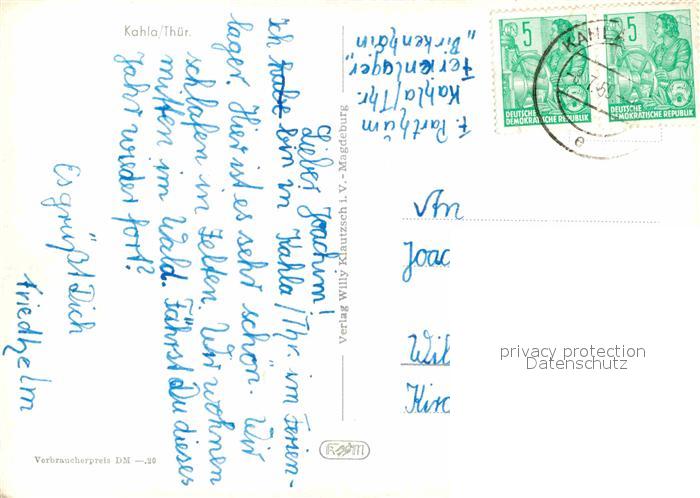 Kahla/Thür.
Lieber Joachim!
Ich habe bin in Kahla/Thr. im Ferien-
lager. Hier ist es sehr schön. Wir
schlafen in Zelten. Wir wohnen
mitten im Wald. Fährst Du dieses
Jahr wieder fort?
Es grüßt Dich
Friedhelm
Verbraucherpreis DM —.20
Verlag Willy Klautzsch i. V. - Magdeburg
F. Partham
Kahla/Thr.
Ferienlager
„Birkenhain"
5
DEUTSCHE
DEMOKRATISCHE REPUBLIK
5
DEUTSCHE
DEMOKRATISCHE REPUBLIK
KAHLA
e
An
Joac
Wil
Kirc
privacy protection
Datenschutz